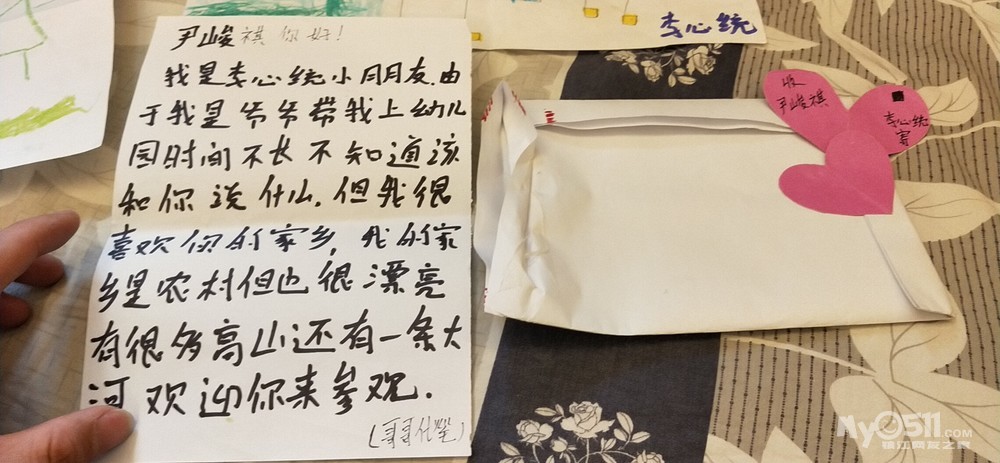 李心统
尹峻祺 你好!
我是李心统小朋友.由
于我是爷爷带我上幼儿
园时间不长不知道该
和你说什么.但我很
喜欢你的家乡,我的家
乡是农村但也很漂亮
有很多高山还有一条大
河欢迎你来参观.
(哥哥代笔)
收
尹峻祺
李心统
寄
My0511.COM
镇江网友之家